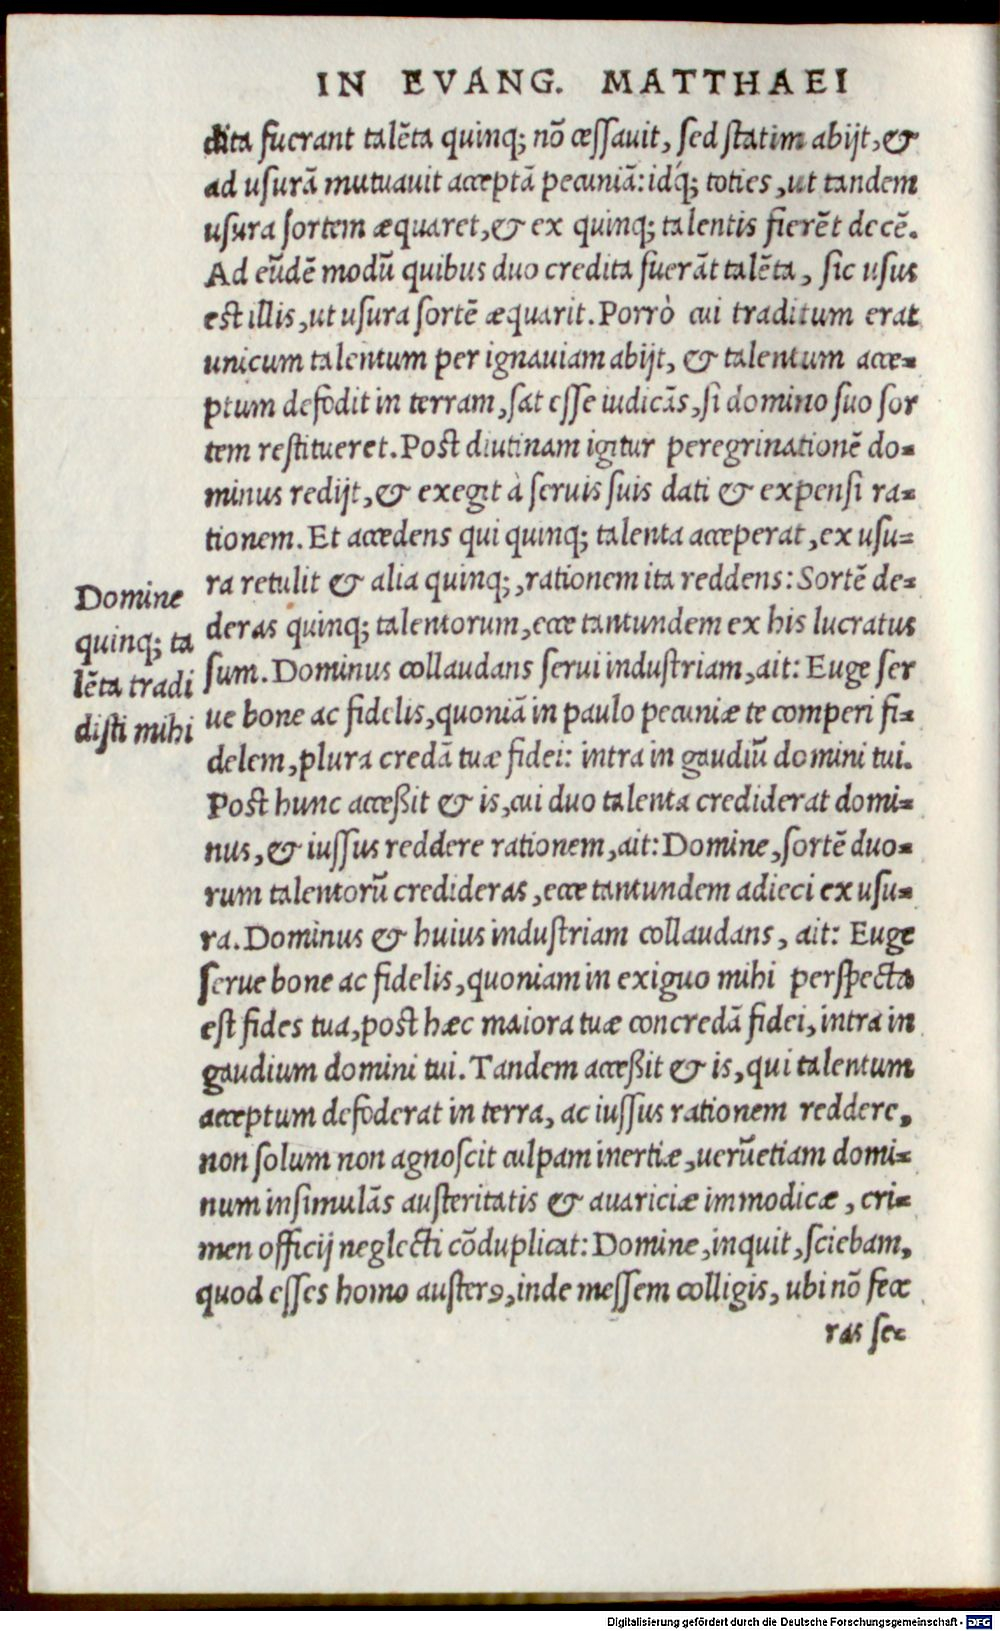 IN EVANG. MATTHAEI
dita fuerant talẽta quinq; nõ cessauit, sed statim abijt, &
ad usurã mutuauit acceptã pecuniã: idq́; toties, ut tandem
usura sortem æquaret, & ex quinq; talentis fierẽt decẽ.
Ad eũdẽ modũ quibus duo credita fuerãt talẽta, sic usus
est illis, ut usura sortẽ æquarit. Porrò cui traditum erat
unicum talentum per ignauiam abijt, & talentum acce-
ptum defodit in terram, sat esse iudicãs, si domino suo sor
tem restitueret. Post diutinam igitur peregrinationẽ do-
minus redijt, & exegit à seruis suis dati & expensi ra-
tionem. Et accedens qui quinq; talenta acceperat, ex usu-
ra retulit & alia quinq;, rationem ita reddens: Sortẽ de-
deras quinq; talentorum, ecce tantundem ex his lucratus
sum. Dominus collaudans serui industriam, ait: Euge ser
ue bone ac fidelis, quoniã in paulo pecuniæ te comperi fi-
delem, plura credã tuæ fidei: intra in gaudiũ domini tui.
Post hunc acceßit & is, cui duo talenta crediderat domi-
nus, & iussus reddere rationem, ait: Domine, sortẽ duo-
rum talentorũ credideras, ecce tantundem adieci ex usu-
ra. Dominus & huius industriam collaudans, ait: Euge
serue bone ac fidelis, quoniam in exiguo mihi perspecta
est fides tua, post hæc maiora tuæ concredã fidei, intra in
gaudium domini tui. Tandem acceßit & is, qui talentum
acceptum defoderat in terra, ac iussus rationem reddere,
non solum non agnoscit culpam inertiæ, uerũetiam domi-
num insimulãs austeritatis & auariciæ immodicæ, cri-
men officij neglecti cõduplicat: Domine, inquit, sciebam,
quod esses homo austerꝯ, inde messem colligis, ubi nõ fece
ras se-
Domine
quinq; ta
lẽta tradi
disti mihi
Digitalisierung gefördert durch die Deutsche Forschungsgemeinschaft - DFG